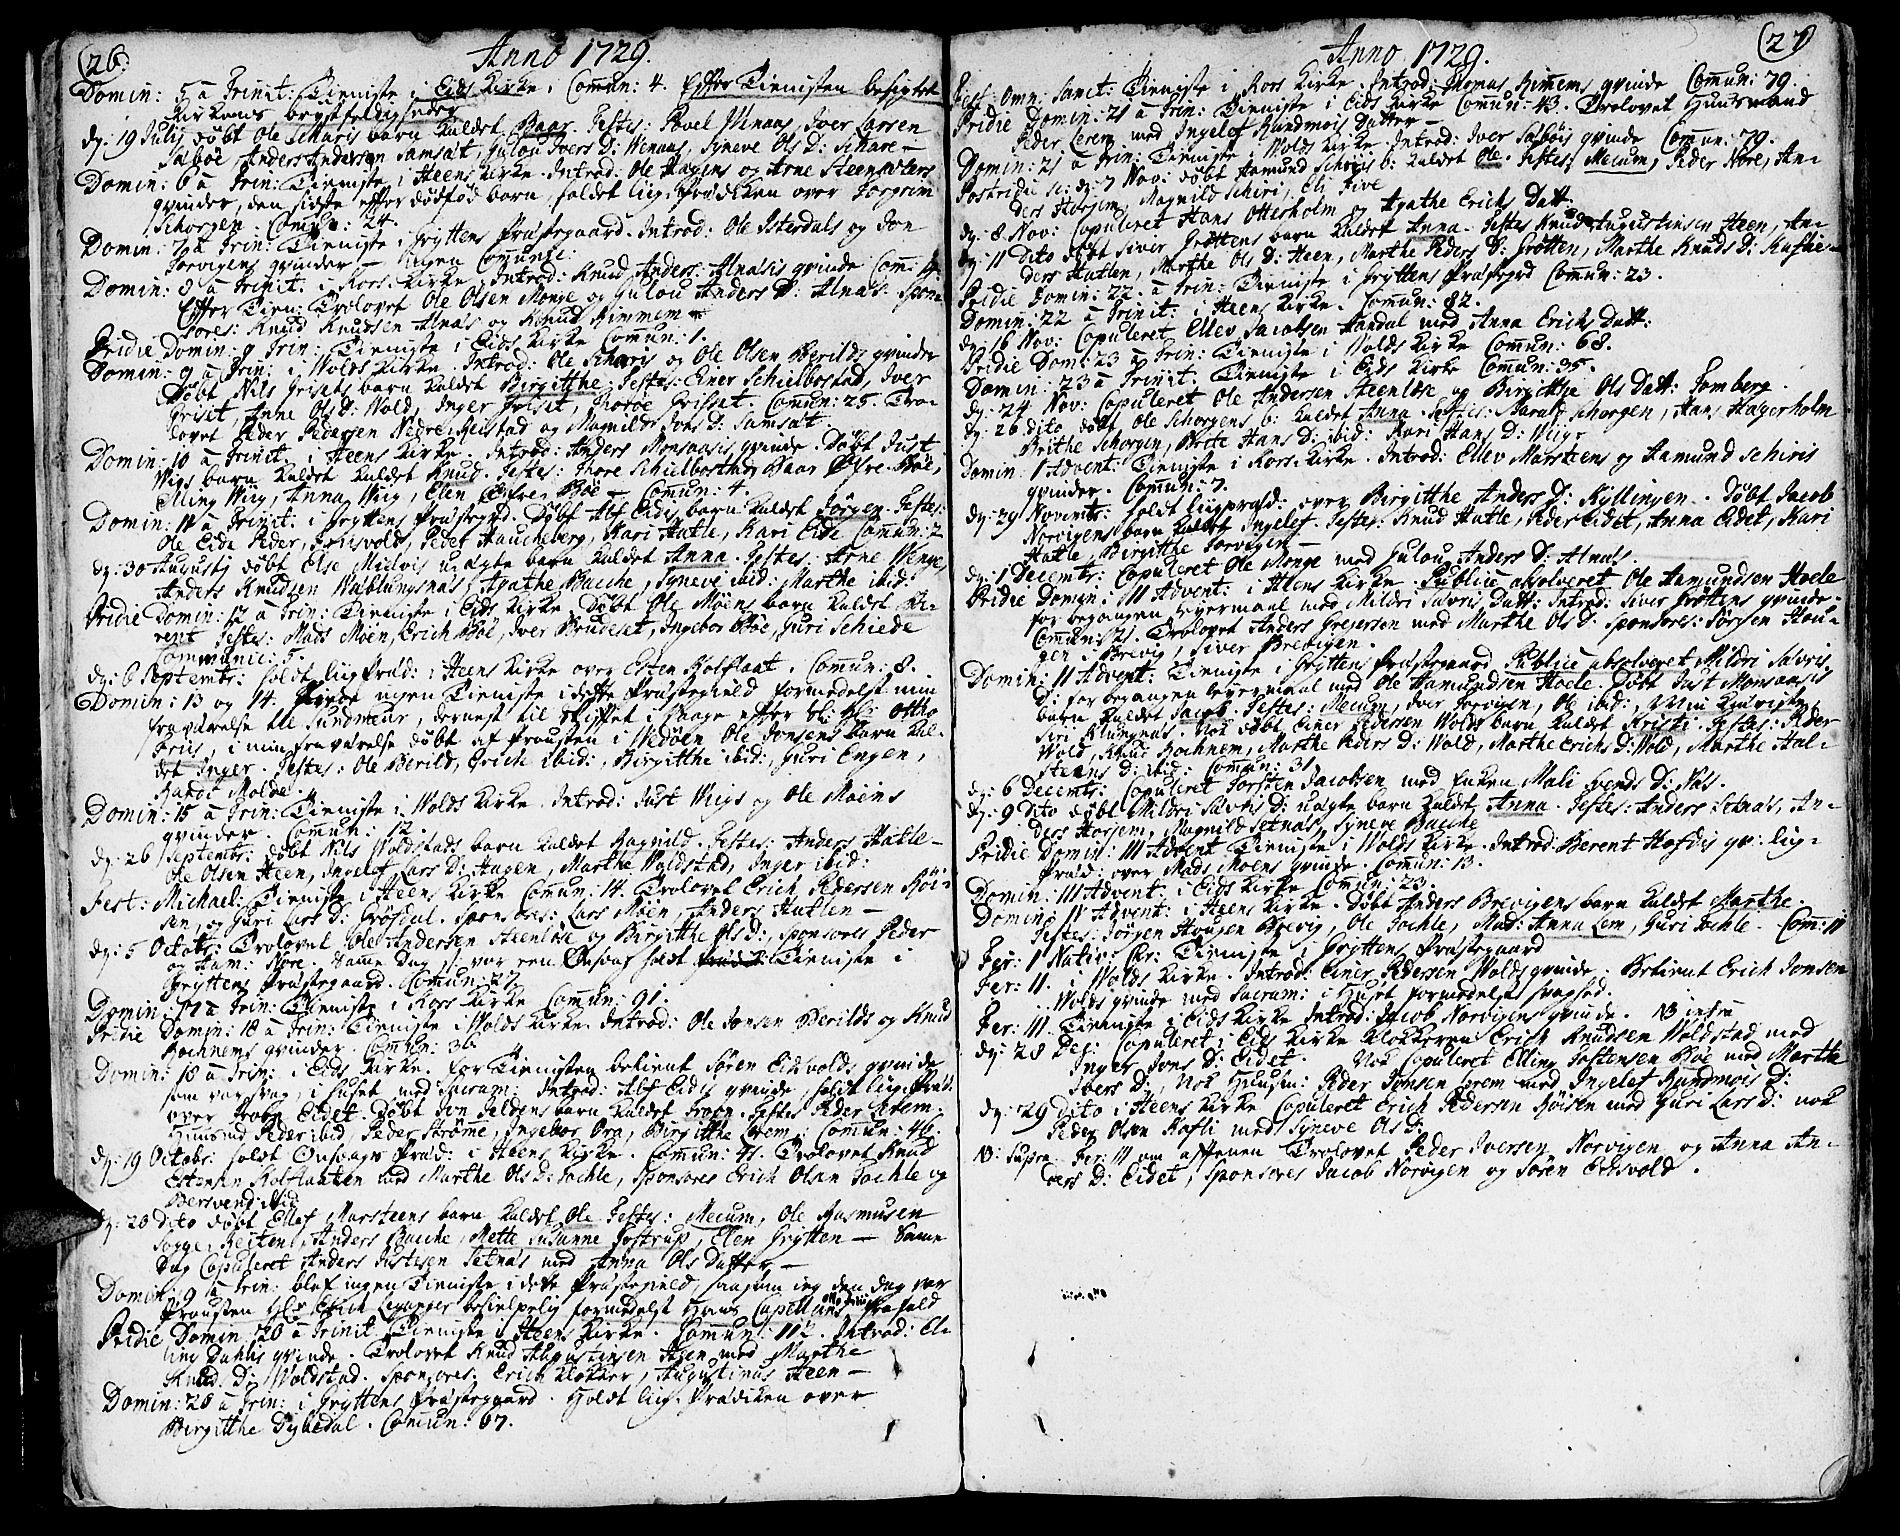 (26.
Anno 1729.
Domin: 5 a Trinit: Tieniste i Eids Kirke. Comun: 4. Effter Tienisten besigtet
Kirkens brystfeldigheder
dg. 19 Julij döbt Ole Scharis barn kaldet Baar. Testes: Povel Unaas, Iver Larsen
Salböe, Anders Andersen Samsæt, Gulou Ivers D: Venaas, Syneve Ols D: Schare-
Domin: 6 a Trin: Tieniste i Heens Kirke. Introd: Ole Hagens og Arne Steensæters
qvinder, den sidste effter dödfod barn, holdet liig-Prædiken over Torgrim
Schorgen. Comun: 24.
Domin: 7 a Trin: i Gryttens Præstegaard. Introd: Ole Isterdals og Jon
Torvigens qvinder - ingen Comunic:
Domin: 8 a Trinit: i Kors Kirke, Introd: Knud Anders: Alnæsis qvinde Com: 14.
Effter Tien: Trolovet Ole Olsen Monge og Gulou Anders D: Alnæs. Spon-
sores: Knud Knudsen Alnæs og Knud Rimmem
Pridie Domin: 9 Trin: Tieniste i Eids Kirke Comun: 1.
Domin: 9 a Trin: i Wolds Kirke. Introd: Ole Scharis og Ole Olsen Berilds qvinder
Döbt Nils Grisets barn kaldet Birgitthe. Testes: Einer Schielbostad, Iver
Griset, Anne Ols D: Wold, Inger Griset, Goröe Grisset. Comun: 25. Tro-
lovet Peder Pedersen Nedre Keistad og Magnilde Jons D: Samsæt
Domin: 10 a Trinit. i Heens Kirke. Introd: Anders Monsaasis qvinde. Döbt Just
Wigs barn kaldet kaldet Knud. Testes: Thore Schielbostad, Baar Öfre-Böe,
Elling Wiig, Anna Wiig, Elen Öfre Böe - Comun: 4.
Domin: 11 a Trinit: i Gryttens Præstegrd. Döbt Alf Eidis barn kaldet Jörgen. Testes:
Ole Eide Peder, Grisvold, Peder Haucheberg, Kari Hatle, Kari Eide Comun: 2
dg: 30 Augustij döbt Else Midvis uægte barn kaldet Anna. Testes: Arne Venge,
Anders Knudsen Wæblungsnæs, Agathe Bache, Syneve ibid: Marthe ibid:
Pridie Domin: 12 a Trin: Tieniste i Eids Kirke. Döbt Ole Möens barn kaldet Be-
rent Testes: Mads Möen, Erich Böe, Iver Brudeset, Ingebor Böe, Guri Schiede
Communic: 5.
dg: 6 Septembr: holdt liigPræd: i Heens Kirke over Esten Kolflaat. Comun: 8.
Domin: 13 og 14. ingen Tieniste i dette Præstegield formedelst min
fraværelse til Sundmeur, dernest til Skiftet i Haage effter Sl: Hr: Ottho
, i min fraværelse döbt af Prousten i Wedöen Ole Jonsens barn kal-
det Inger. Testes: Ole Berild, Erich ibid:, Birgitthe ibid:, Guri Engen,
Randi Molde.
Domin: 15 a Trin: Tieniste i Wolds Kirke. Introd: Just Wiigs og Ole Moens
qvinder. Comun: 12.
dg: 26 Septembr: döbt Nils Woldstads barn kaldet Ragnild. Testes: Anders Hatle-
Ole Olsen Heen, Ingelef Lars D: Hagen, Marthe Woldstad, Inger ibid:
Fest: Michael: Tieniste i Heens Kirke Comun: 14. Trolovet Erich Pedersen Röi-
sen, og Guri Lars D: Grösdal. Sponsores: Lars Möen, Anders Hatlen -
dg: 5 Octobr: Trolovet Ole Andersen Steenlöse og Birgitthe Ols D:, sponsores Peder
og Aam: Nore. Samme Dag, var een Onsdag holdt Tieniste i
Gryttens Præstegaard. Comun: 27.
Domin: 17 a Trin: Tieniste i Kors Kirke Comun: 91.
Pridie Domin: 18 a Trin: Tieniste i Wolds Kirke. Introd: Ole Jonsen Berilds og Knud
Bochnems qvinder. Comun: 36
Domin: 18 a Trin: i Eids Kirke. for Tienisten betient Sören Eidsvolds qvinde
som var svag, i huset med Sacram: Introd: Alf Eidis qvinde, holdt liig. Præd:
over Eidet. Döbt Jon Feldens barn kaldet. Testes Peder Lerem,
Peder ibid, Peder Strömme, Ingebor Ora, Birgitthe Lerem. Comun: 46.
dg. 19 Octobr: holdt Onsdags Præd: i Heens Kirke. Comun: 41. Trolovet Knud
Estensen Kolflaaten med Marthe Ols D: Sochle, Sponsores Erich Olsen Sochle og
Bersvend ibid
dg: 20 Dito döbt Ellef Marsteens barn kaldet Ole Testes: Mecum, Ole Rasmusen
Sogge, Reiten, Anders Bache, Mette Susanne Tostrup, Elen Grytten - Samme
Dag Copuleret Anders Justesen Setnæs med Anna Ols Datter -
Domin: 19 a Trin: blef ingen Tieniste i dette Præstegield, saasom ieg den dag var
Prousten Hr Erich Leganger behielpelig formedelst Hans Capellans frafald
Pridie Domin: 20 a Trinit Tieniste i Heens Kirke. Comun: 112. Introd: El-
ling Dahlis qvinde. Trolovet Knud Augustinsen Heen med Marthe
Knud D: Woldstad. Sponsores: Erich Klokker, Augustinus Heen -
Domin: 20 a Trin: i Gryttens Præstegaard. Holdt liig-Prædiken over
Birgitthe Dybedal. Comun: 67.
Anno 1729.
(27)
Fest: Omn: Sanct: Tieniste i Kors Kirke. Introd: Thomas Rimmems qvinde Comun: 79.
Pridie Domin: 21 a Trin: Tieniste i Eids Kirke Comun: 43. Trolovet Huusmand
Peder Lerem med Ingelef Hundmois Datter -
Domin: 21 a Trin: Tieniste i Wolds Kirke. Introd: Iver Salböis qvinde Comun: 79.
Postridie sc: dg: 7 Nov: döbt Aamund Schiris b: kaldet Ole. Testes: Mecum, Peder Nore, An-
ders Horjem, Magnild Schiri, Eli Five
dg: 8 Nov: Copuleret Hans Otterholm og Agathe Erichs Datt:
dg: 11 Dito döbt Siver Gröttens barn kaldet Anna. Testes Knud Augustinsen Heen, An-
ders Hatlen, Marthe Ols D: Heen, Marthe Peders D: Grötten, Marthe Knuds D: Kafli -
Pridie Domin: 22. a Trin: Tieniste i Gryttens Præstegrd Comun: 23.
Domin: 22 a Trinit: i Heens Kirke. Comun: 82.
dg: 16 Nov: Copuleret Ellev Jacobsen Aandal med Anna Erichs Datt:
Pridie Dom: 23 a Trin: Tieniste i Wolds Kirke Comun: 68.
Domin: 23 a Trinit. Tieniste i Eids Kirke Comun: 35.
dg: 24 Nov: Copuleret Ole Andersen Steenlöse og Birgitthe Ols Datt: Tomberg.
dg: 26 dito döbt Ole Schorgens b: kaldet Anna. Testes: Harald Schorgen, Hans Hagerholm
Brithe Schorgen, Berte Hans D: ibid: Kari Hans D: Wiig -
Domin: 1 Advent: Tieniste i Kors Kirke. Introd: Ellev Marsteens og Aamund Schiris
qvinder. Comun: 7.
dg: 29 Novembr: holdt liigpræd: over Birgitthe Anders D: Kyllingen. Döbt Jacob
Norvigens barn kaldet Ingelef. Testes: Knud Hatle, Peder Eidet, Anna Eidet, Kari
Hatle, Birgitthe Torvigen -
dg: 1 Decembr: Copuleret Ole Monge med Gulou Anders D: Alnæs.
Pridie Domin: III Advent: i Heens Kirke. Publice absolveret Ole Aamundsen Hoele
for begangen Leyermaal med Mildri Savris Datt: Introd: Siver Gröttens qvinde.
Comun: 21. Trolovet Anders Gregersen med Marthe Ols D: Sponsores: Jörgen Hou-
gen i Brevig, Siver Brevigen.
Domin: II Advent: Tieniste i Gryttens Præstegaard Publice absolveret Mildri Savris
D: for begangen Leyermaal med Ole Aamundsen Hoele. Döbt Just Monsaasis
barn kaldet Jacob. Testes: Mecum, Iver Torvigen, Ole ibid:, Min Kieriste,
Siri Klungnæs. Nok döbt Einer Pedersen Wolds barn kaldet Kristi. Testes: Peder
Wold, Knud Bochnem, Marthe Peders D: Wold, Marthe Erichs D: Wold, Marthe Hal-
steens D: ibid: Comun: 31
dg: 6 Decembr: Copuleret Torsten Jacobsen med Enken Mali Svends D: Næs.
dg. 9 Dito döbt Mildri Savris D: uægte barn kaldet Anna. Testes: Anders Setnæs, An-
ders Horjem, Magnild Setnæs, Syneve Bache
Pridie Domin: III Advent Tieniste i Wolds Kirke. Introd: Berent Hafdis qv: liig-
Præd: over Mads Moens qvinde. Comun: 13.
Domin: III Advent: i Eids Kirke Comun: 23.
Domin: IV Advent: i Heens Kirke. Döbt Anders Brevigens barn kaldet Marthe.
Testes: Jörgen Hougen Brevig, Ole Sochle, Mad: Anna Lem, Guri Sochle. Com: 11
Fer: 1 Nativ: Chr: Tieniste i Gryttens Præstegaard
Fer: 11. i Wolds Kirke. Introd: Einer Pedersen Wolds qvinde. Betient Erich Jonsen
Wolds qvinde med Sacram: i Huset formedelst svaghed.
Fer: III. Tieniste i Eids Kirke Introd: Jacob Norvigens qvinde. NB infra
dg: 28 Dec: Copuleret i Eids Kirke Klokkeren Erich Knudsen Woldstad med
Inger Jons D: Eidet. Nok Copuleret Elling Testensen Böe med Marthe
Ivers D:, Nok Huusm: Peder Jonsen Lerem med Ingelef Hundmois D:
dg. 29 Dito i Heens Kirke Copuleret Erich Pedersen Röisen med Guri Lars D: nok
Peder Olsen Kafli med Syneve Ols D:
NB: Supra Fer: III om afftenen Trolovet Peder Iversen Norvigen og Anna An-
ders D: Eidet, sponsores Jacob Norvigen og Sören Eidsvold.